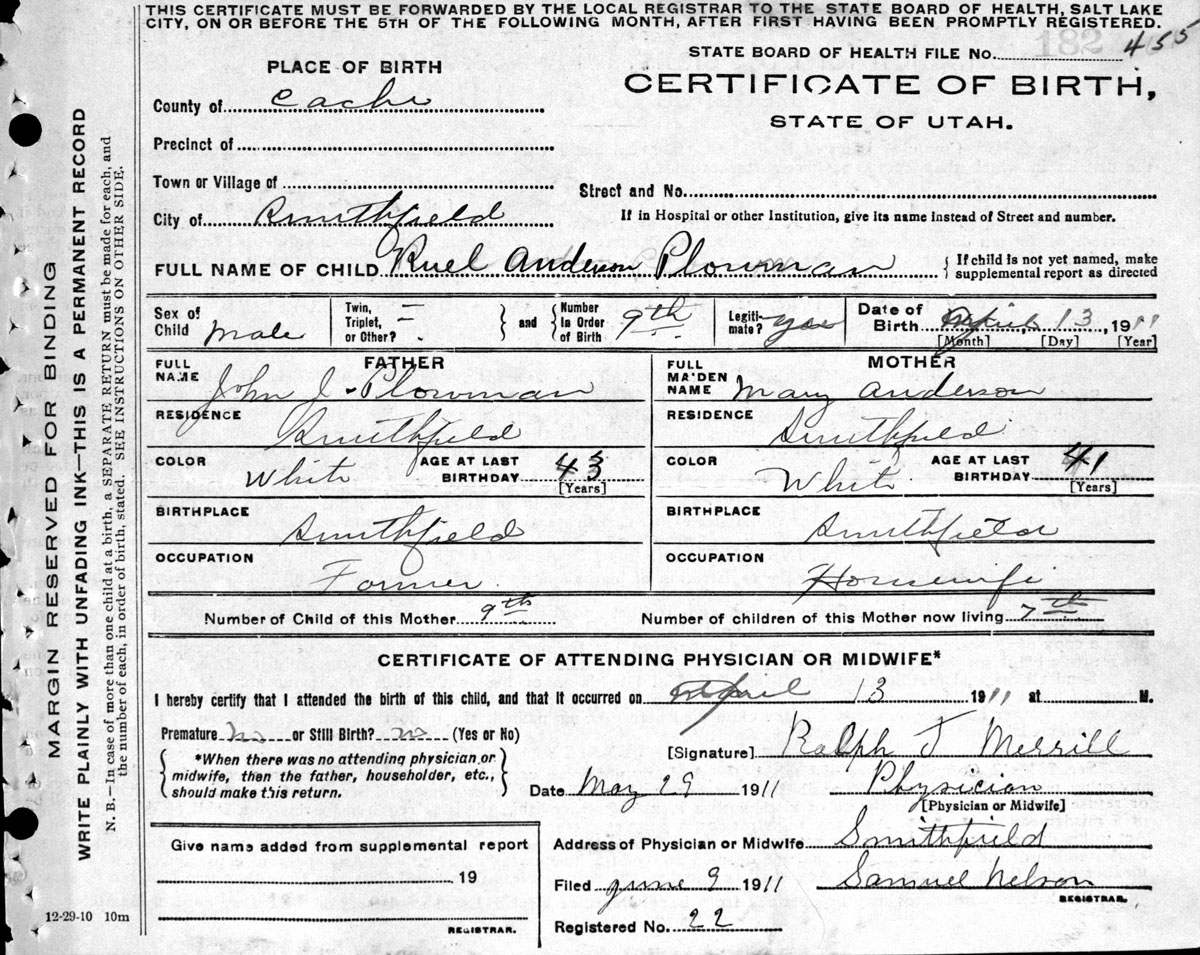 THIS CERTIFICATE MUST BE FORWARDED BY THE LOCAL REGISTRAR TO THE STATE BOARD OF HEALTH, SALT LAKE
CITY, ON OR BEFORE THE 5TH OF THE FOLLOWING MONTH, AFTER FIRST HAVING BEEN PROMPTLY REGISTERED.
182 455
STATE BOARD OF HEALTH FILE No.
PLACE OF BIRTH
CERTIFICATE OF BIRTH,
STATE OF UTAH.
County of Cache
Precinct of
Town or Village of
Street and No.
City of Smithfield
If in Hospital or other Institution, give its name instead of Street and number.
FULL NAME OF CHILD Ruel Anderson Plowman { If child is not yet named, make
supplemental report as directed
Sex of Child Male
Twin, Triplet, or Other? –
} and { Number in Order of Birth 9th
Legiti-mate? yes
Date of Birth April 13, 1911
[Month] [Day] [Year]
FATHER
FULL NAME John J. Plowman
MOTHER
FULL MAIDEN NAME Mary Anderson
RESIDENCE Smithfield
RESIDENCE Smithfield
COLOR White AGE AT LAST BIRTHDAY 43 [Years]
COLOR White AGE AT LAST BIRTHDAY 41 [Years]
BIRTHPLACE Smithfield
BIRTHPLACE Smithfield
OCCUPATION Farmer
OCCUPATION Housewife
Number of Child of this Mother 9th
Number of children of this Mother now living 7th
CERTIFICATE OF ATTENDING PHYSICIAN OR MIDWIFE*
I hereby certify that I attended the birth of this child, and that it occurred on April 13 1911 at M.
Premature No or Still Birth? no (Yes or No)
{ *When there was no attending physician or
midwife, then the father, householder, etc.,
should make this return. }
[Signature] Ralph T Merrill
Date May 29 1911 Physician
[Physician or Midwife]
Give name added from supplemental report
19
REGISTRAR.
Address of Physician or Midwife Smithfield
Filed June 9 1911 Samuel Nelson
REGISTRAR.
Registered No. 22
12-29-10 10m
MARGIN RESERVED FOR BINDING
WRITE PLAINLY WITH UNFADING INK—THIS IS A PERMANENT RECORD
N. B.—In case of more than one child at a birth, a SEPARATE RETURN must be made for each, and
the number of each, in order of birth, stated. SEE INSTRUCTIONS ON OTHER SIDE.